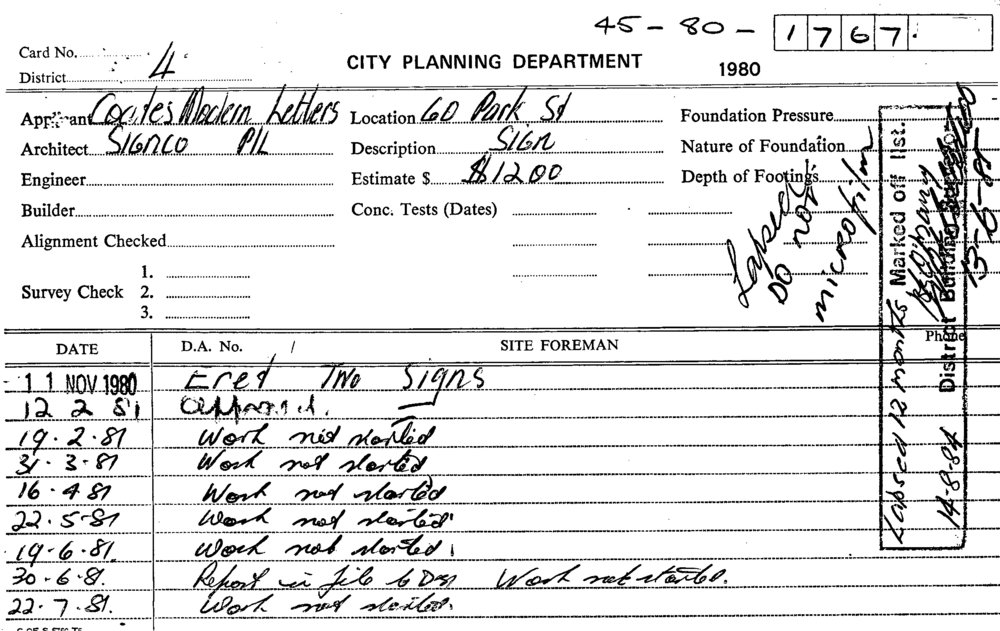 45 - 80 - 1767.
Card No.
District 4
CITY PLANNING DEPARTMENT
1980
Applicant Coates Modern Letters
Location 60 Park St
Foundation Pressure
Architect SIGNCO P/L
Description SIGN
Nature of Foundation
Engineer
Estimate $ $1200
Depth of Footings
Builder
Conc. Tests (Dates)
Alignment Checked
1.
Survey Check 2.
3.
Lapsed
DO NOT
microfilm
Lapsed 12 months Marked off list.
14-8-84 District Building
13-6-85
Phone
DATE
D.A. No. /
SITE FOREMAN
11 NOV 1980 Erect Two Signs
12 2 81 approved.
19.2.81 Work not started
31.3.81 Work not started
16.4.81 Work not started
22.5-81 Work not started
19-6.81. Work not started.
30-6-81. Report in file to Work not started.
22.7.81. Work not started.